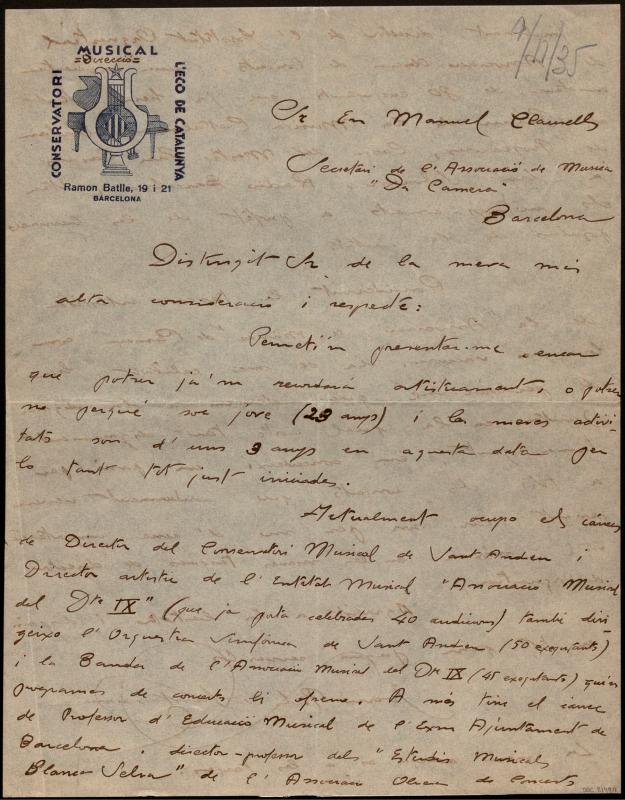 CONSERVATORI MUSICAL L'ECO DE CATALUNYA
=Direcció=
Ramon Batlle, 19 i 21
BARCELONA
9/11/35
Sr En Manuel Clausells
Secretari de l'Associació de Musica
"Da Camera"
Barcelona
Distingit Sr. de la meva més
alta consideració i respecte:
Permeti'm presentar-me, encar
que potser ja'm recordará artísticament, o potser
no perqué soc jove (23 anys) i les meves activi-
tats son d'uns 3 anys en aquesta data per
lo tant tot just iniciades.
Actualment ocupo els cárrecs
de Director del Conservatori Musical de Sant Andreu i
Director artístic de l'Entitat Musical "Associació Musical
del Dte IX" (que ja porta celebrades 40 audicions) també diri-
geixo l'Orquestra Simfónica de Sant Andreu (50 executants)
i la Banda de l'Associació Musical del Dte IX (45 executants) quins
programes de concerts li oferei. A més tinc el cárrec
de Professor d'Educació Musical de l'Exm Ajuntament de
Barcelona i director-professor dels "Estudis Musicals
Blanca Selva" de l'Associació Obrera de Concerts
DOC 81490